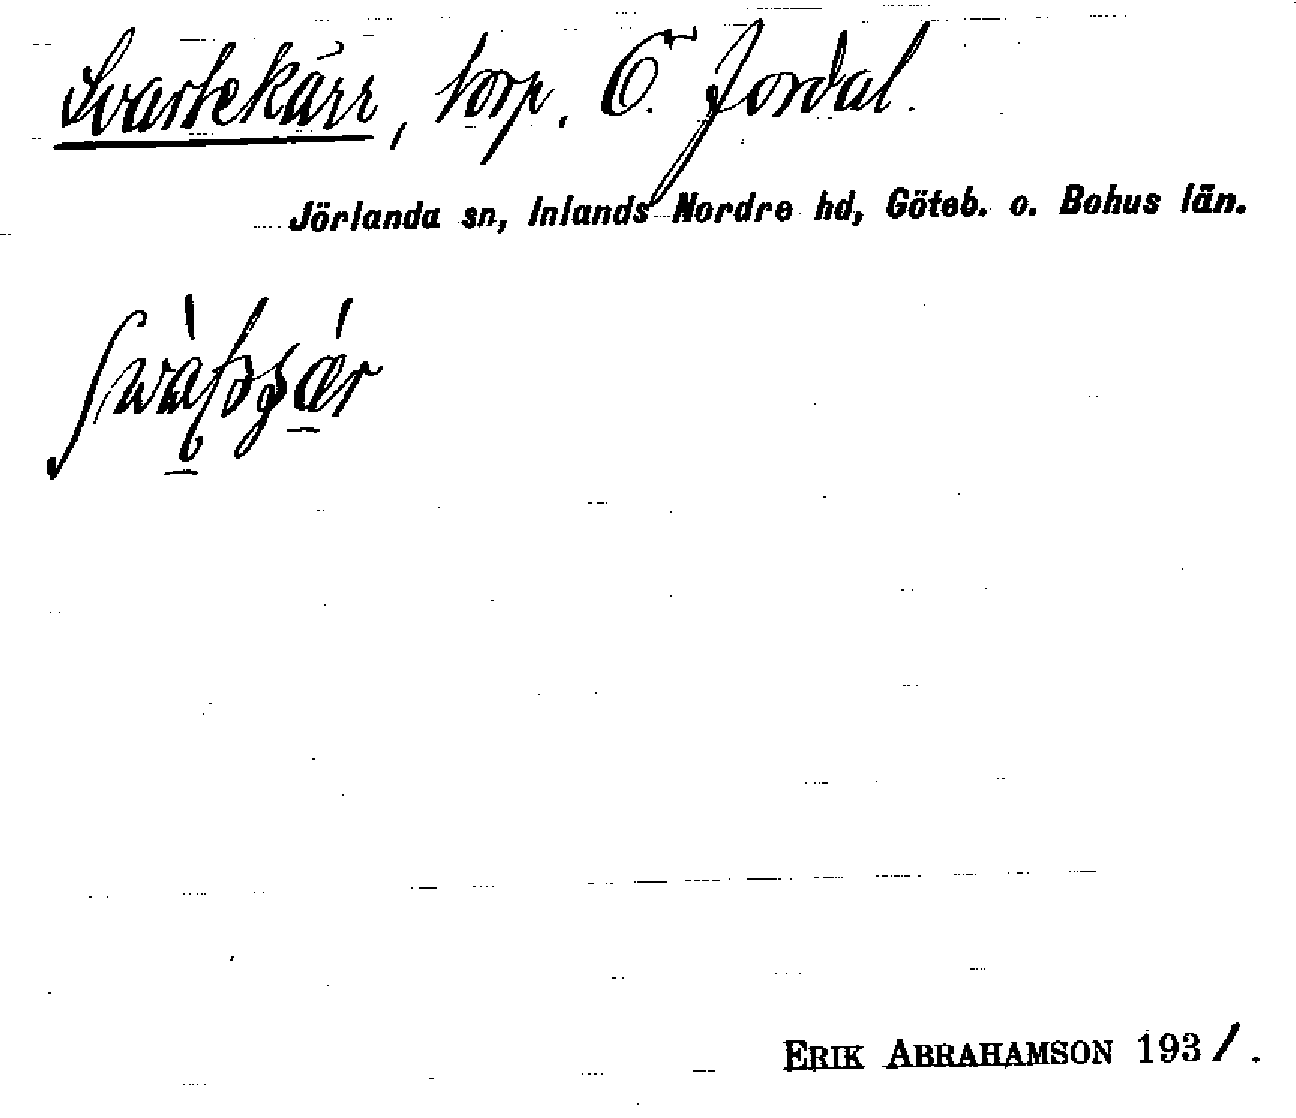 Svartekärr, torp. Ö. Jordal.
Jörlanda sn, Inlands Nordre hd, Göteb. o. Bohus län.
ERIK ABRAHAMSON 1931.